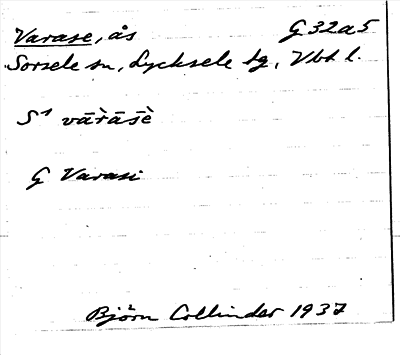 Varase, ås G 32a5
Sorsele sn, Lycksele tg, Vbt l.
S¹ vār̀ās̄è
G Varasi
Björn Collinder 1937